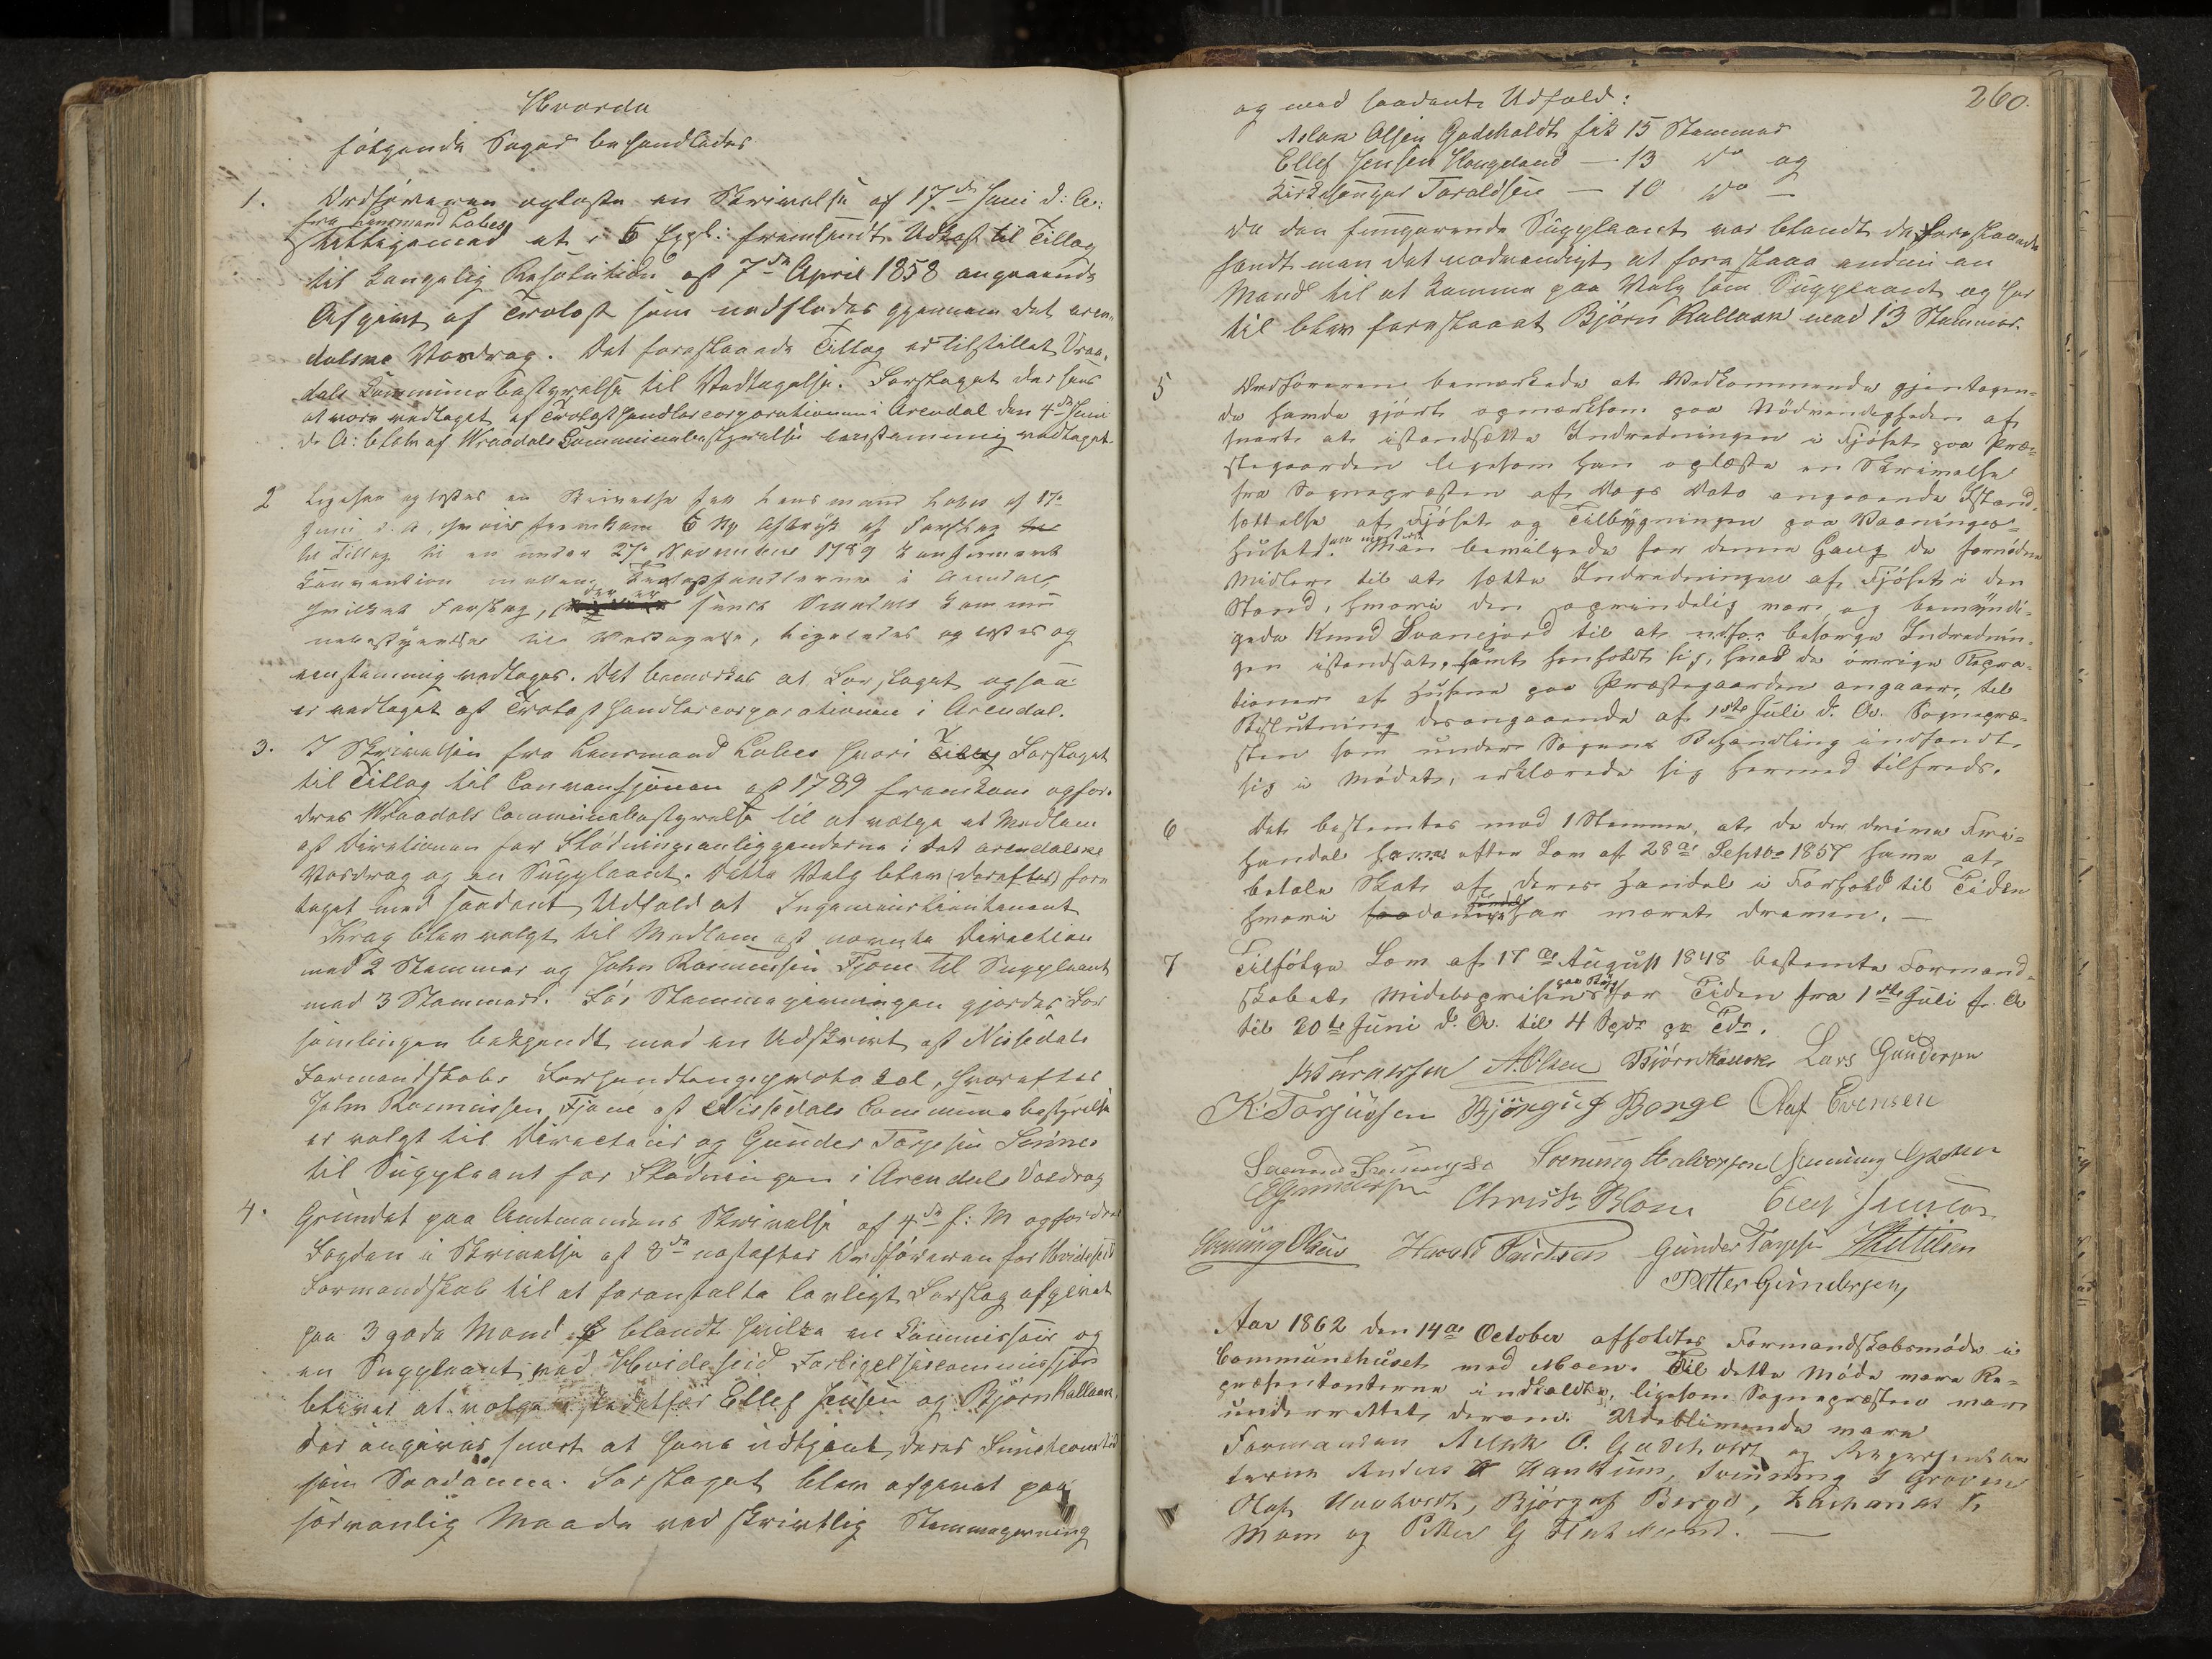 Hvorda
følgende Sager behandledes
1. Ordføreren oplæste en Skrivelse af 17de Juni d: A:
fra Lensmand Lobes
hettigemed et i 6 Expl: fremsendt Udkast til Tillæg
til kongelig Resolution af 7de April 1858 angaaende
Afgivt af Trælast som nedflødes gjennem det aren-
dalske Vasdrag. Det foreslaaede Tillæg er tilstillet Vraa-
dals Communebestyrelse til Vedtagelse. Forslaget der sees
at være vedtaget af Trælasthandlercorporationen i Arendal den 4de Juni
d: A: blev af Wraadals Communebestyrelse eenstemmig vedtaget
2 Ligesaa oplæstes en Skrivelse fra Lensmand Lobes af 17de
Juni d. A, hvori fremkom 6 Exp Aftryk af Forslag
til Tillæg til en under 27de November 1789 konfirmeret
Convention mellem Trælasthandlerne i Arendal,
hvilket Forslag, der er sendt Vraadals Commu
nebestyrelse til Vedtagelse, ligeledes oplæstes og
eenstemmig vedtages. Det bemærkes at Forslaget ogsaa
er vedtaget af Trælasthandlercorporationen i Arendal.
3. I Skrivelsen fra Lensmand Lobes hvori Tillæg Forslaget
til Tillæg til Convensjonen af 1789 fremkom opfor-
dres Wraadals Communebestyrelse til at vælge et Medlem
af Direktionen for Flødningsanliggenderne i det arendalske
Vasdrag og en Suppleant. Dette Valg blev (derefter) fore
taget med saadant Udfald at Ingenieurlieutenant
Krag blev valgt til Medlem af nævnte Direction
med 2 Stemmer og John Rasmussen Fjone til Suppleant
med 3 Stemmer. Før Stemmegivningen gjordes For
samlingen bekjendt med en Udskrivt af Nissedals
Formandskabs Forhandlingsprotokol, hvorefter
John Rasmussen Fjone af Nissedals Communebestyrelse
er valgt til Directeur og Gunder Tarjesen
til Suppleant for Flødningen i Arendals Vasdrag
4. Grundet paa Amtmandens Skrivelse af 4de f: M opfordrer
Fogden i Skrivelse af 8de næstefter Ordføreren for Hvideseid
Formandskab til at foranstalte lovligt Forslag afgivet
paa 3 gode Mænd blandt hvilke en Commissair og
en Suppleant ved Hvideseid Forligelsescommission
bliver at vælge istedetfor Ellef Jensen og Bjørn Kallaak,
der angives snart at have udtjent deres Functionstid
som Saadanne. Forslaget blev afgivet paa
sædvanlig Maade ved skrivtlig Stemmegivning
260.
og med saadant Udfald:
Aslak Olsen Gadeholdt fik 15 Stemmer
Ellef Jensen Haugeland — 13 do og
Kirkesanger Taraldsen — 10 do —
Da den fungerende Suppleant var blandt de Foreslaaede
fandt man det nødvendigt at foreslaae endnu en
Mand til at komme paa Valg som Suppleant og her
til blev foreslaaet Bjørn Kallaak med 13 Stemmer.
5 Ordføreren bemærkede at Vedkommende gjentagen-
de havde gjort opmærksom paa Nødvendigheden af
snart at istandsætte Indredningen i Fjøset paa Præ-
stegaarden ligesom han oplæste en Skrivelse
fra Sognepræsten af Dags Dato angaaende Istand-
sættelse af Fjøset og Tilbygningen paa Vaanings-
huset. Man bevilgede for denne Gang de fornødne
Midler til at sætte Indredningen af Fjøset i den
Stand, hvori den oprindelig var og bemyndi-
gede Knud Svanejord til at besørge Indrednin-
gen istandsat, samt henholdt sig, hvad de øvrige Repra-
tioner af Husene paa Præstegaarden angaaer, til
Beslutning desangaaende af 1ste Juli d. A. Sognepræ-
sten som under Sagens Behandling indfandt
sig i Mødet, erklærede sig hermed tilfreds.
6 Det bestemtes med 1 Stemme, at de der drive Fri-
handel efter Lov af 28de Septbr 1857 have at
betale Skat af deres Handel i Forhold til Tiden
hvori saadan Handel har været dreven. —
7 Tilfølge Lov af 17de August 1848 bestemte Formand-
skabet Middelprisen paa Rug for Tiden fra 1ste Juli f. A
til 20de Juni d. A. til 4 Spdr pr Tdr.
A. Olsen Bjørn Kallaak Lars Gundersen
K. Tarjussen Bjørgulf Berge Olaf Evensen
Svenung Halvorsen
E Gundersen Christn Blom Ellef Jensen
Svenung Olsen Gunder Tarjesen Kittilsen
Petter Gundersen
Aar 1862 den 14de October afholdtes Formandskabsmøde i
Communehuset med Moen. Til dette Møde vare Re-
præsentanterne indkaldte, ligesom Sognepræsten var
underrettet derom. Udeblivende vare
Formanden Aslak O. Gadeholdt og Repræsentan
terne Anders Haukum, Svenung S Groven
Olaf Haahordt, Bjørgulf Berge,
Mom og Petter G